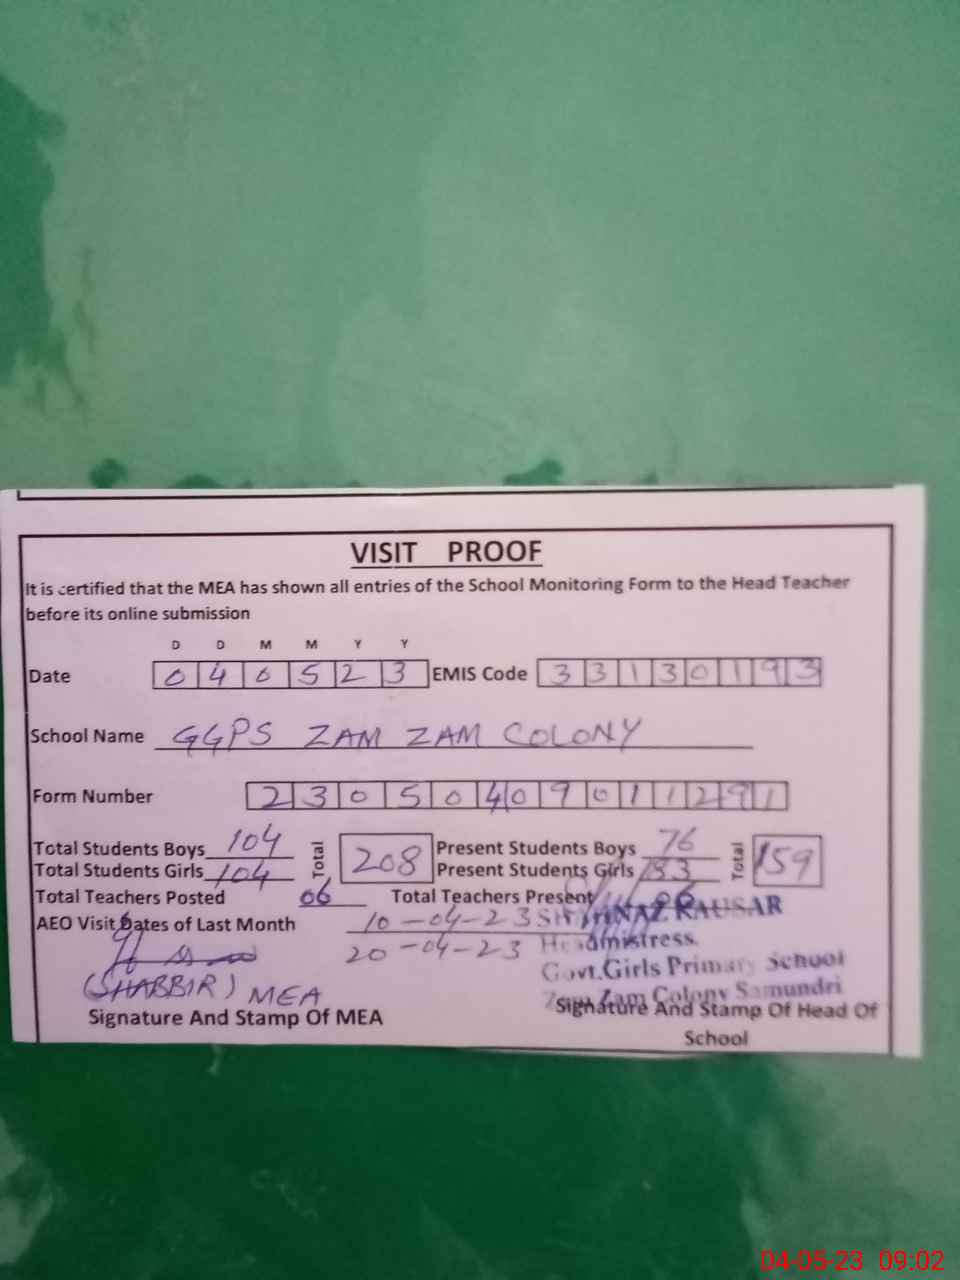 VISIT PROOF
It is certified that the MEA has shown all entries of the School Monitoring Form to the Head Teacher
before its online submission
D D M M Y Y
Date 040523 EMIS Code 33130193
School Name GGPS ZAM ZAM COLONY
Form Number 23050409011291
Total Students Boys 104 Total 208 Present Students Boys 76 Total 159
Total Students Girls 104 Present Students Girls 83
Total Teachers Posted 06 Total Teachers Present 06
AEO Visit Dates of Last Month 10-04-23 SHAHNAZ KAUSAR
20-04-23 Headmistress.
Govt.Girls Primary School
(SHABBIR) MEA Zam Zam Colony Samundri
Signature And Stamp Of MEA Signature And Stamp Of Head Of
School
04-05-23 09:02